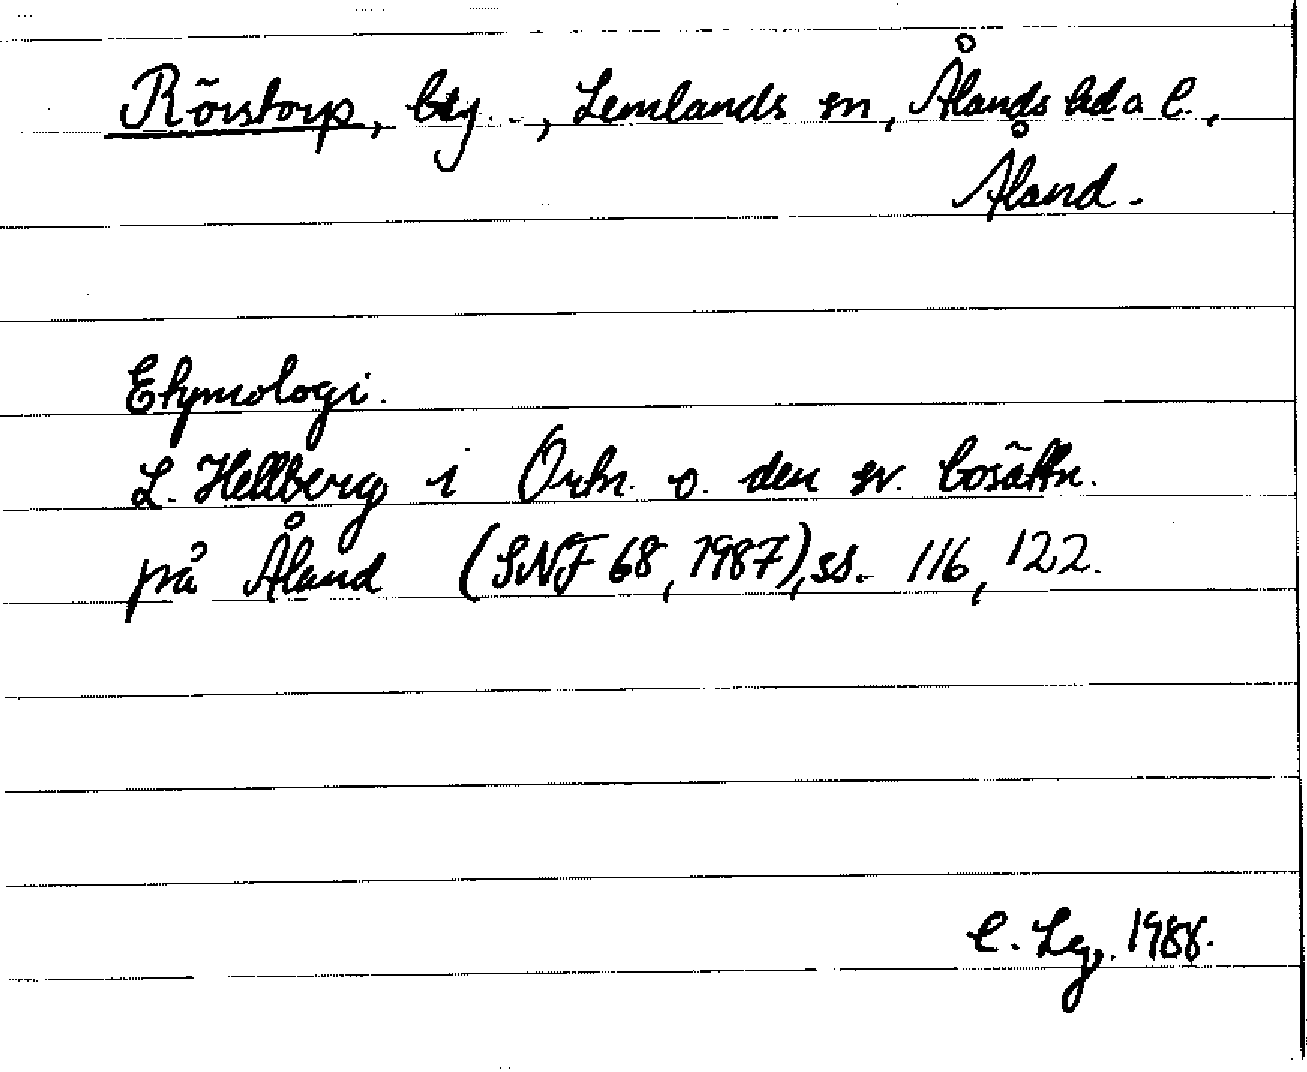 Rörstorp, by.., Lemlands sn, Ålands hd o l.,
Åland.
Etymologi.
L. Hellberg i Ortn. o. den sv. bosättn.
på Åland (SNF 68, 1987), ss. 116, 122.
C. Lg, 1988.